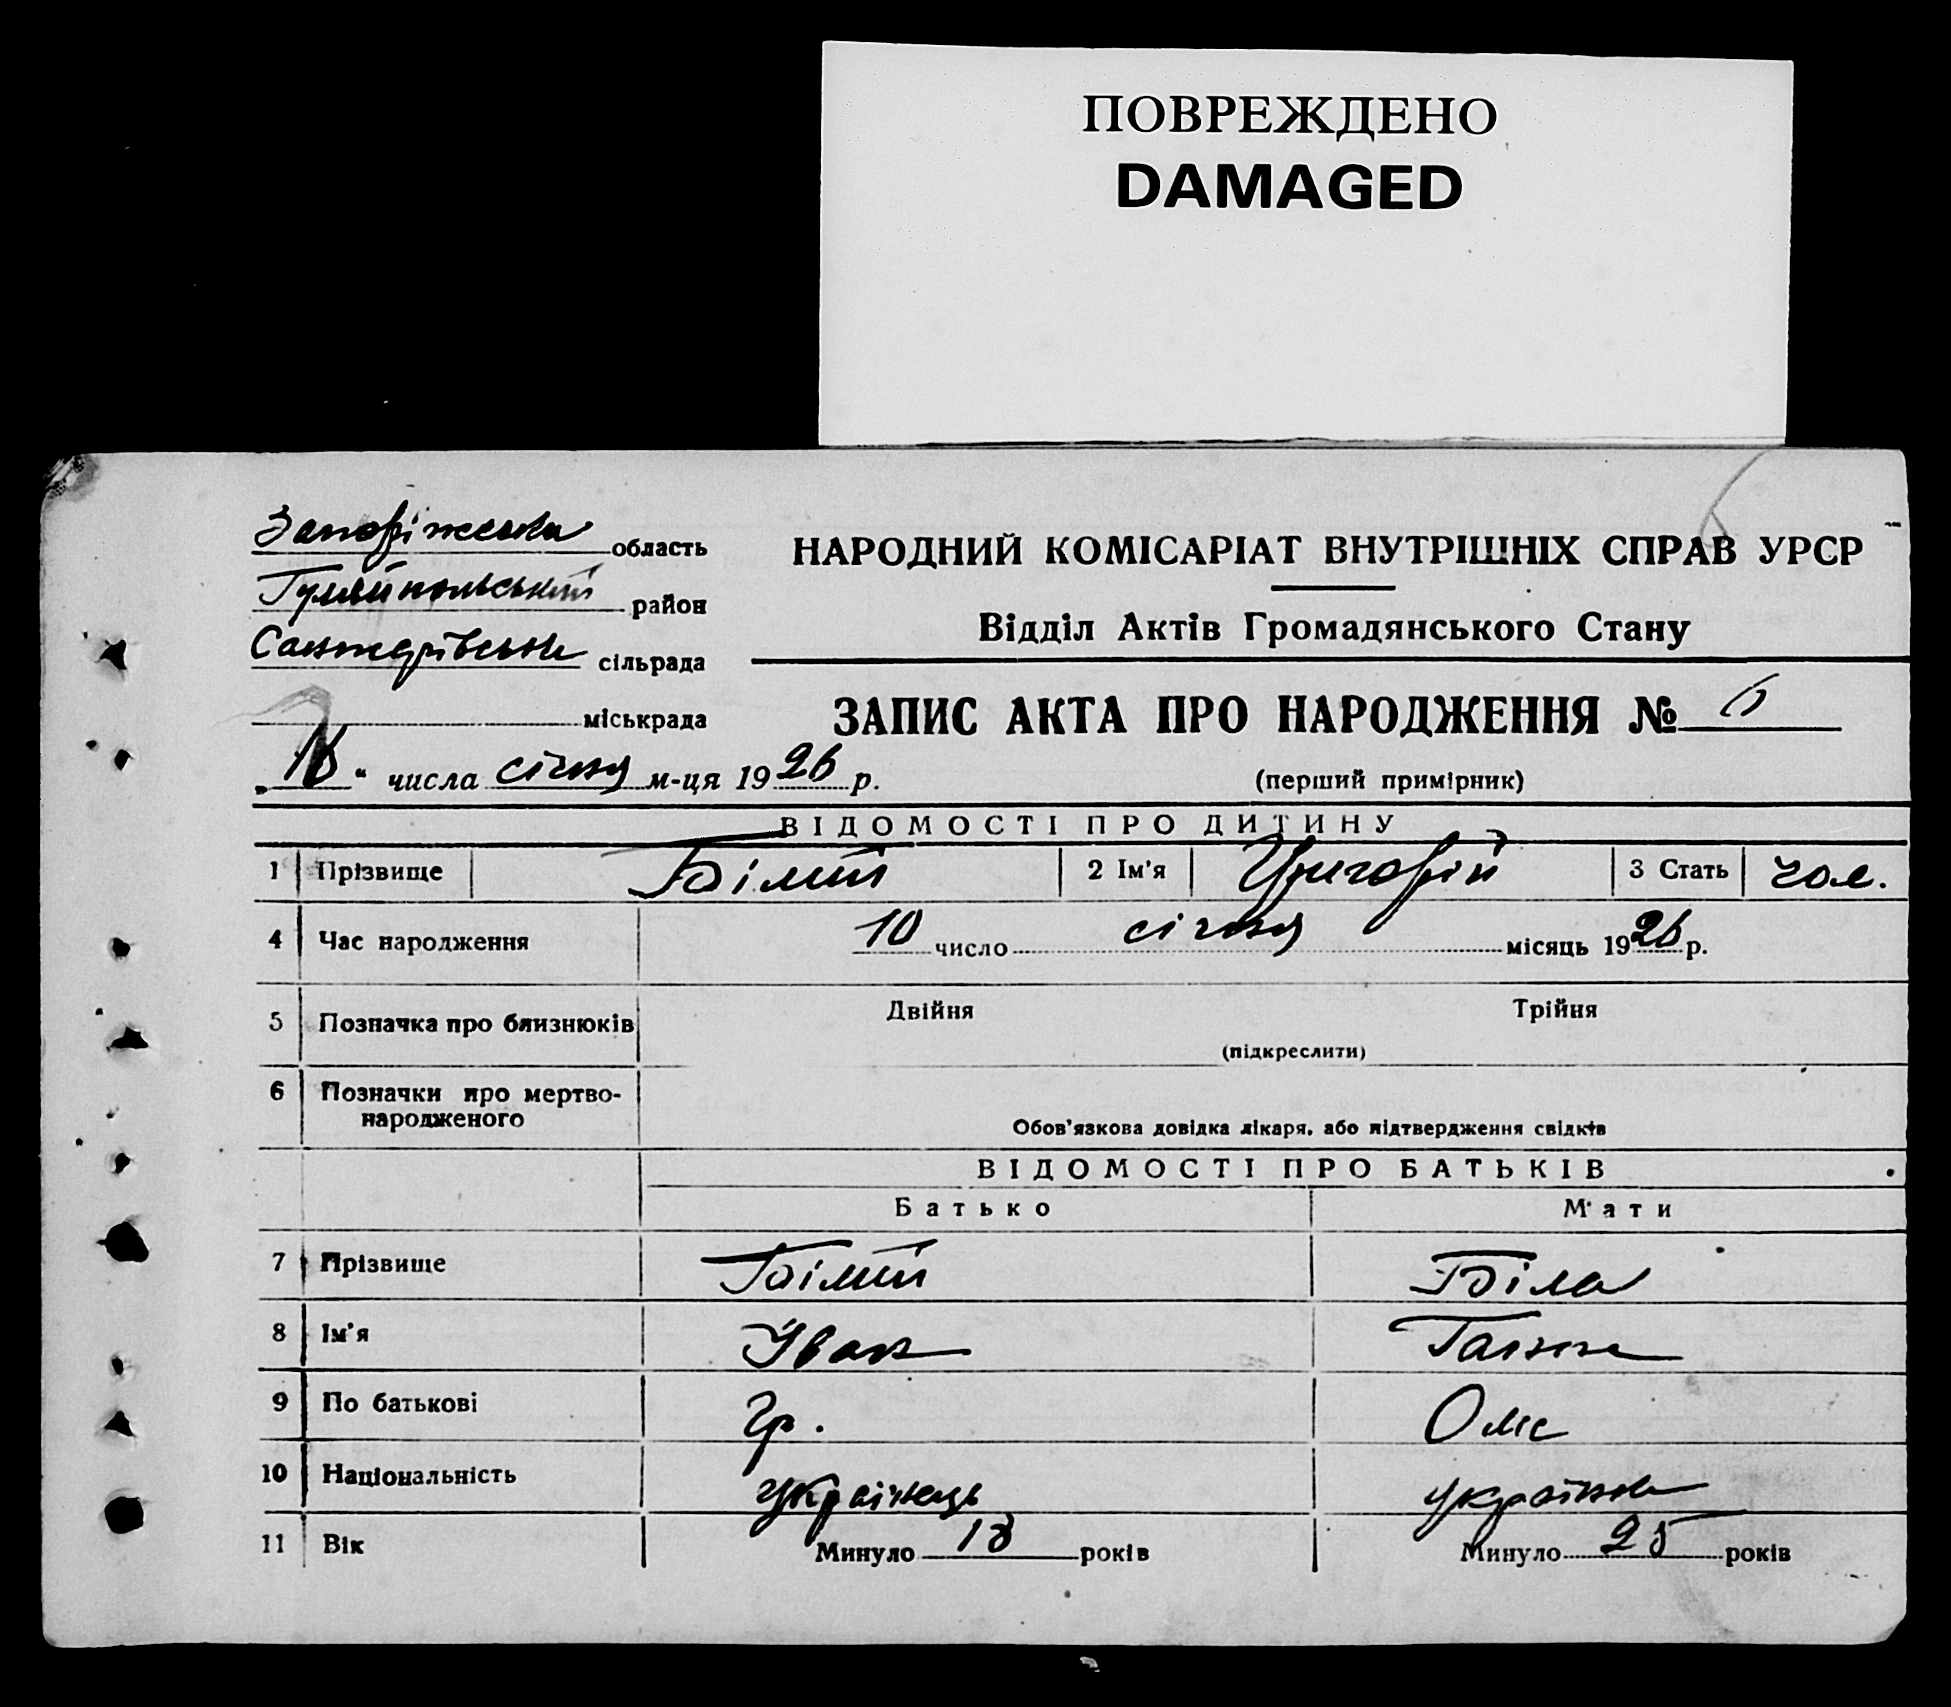 ПОВРЕЖДЕНО
DAMAGED
Запоріжська область
Гуляйпольський район
сільрада
міськрада
НАРОДНИЙ КОМІСАРІАТ ВНУТРІШНІХ СПРАВ УРСР
Відділ Актів Громадянського Стану
ЗАПИС АКТА ПРО НАРОДЖЕННЯ №
(перший примірник)
" числа січня м-ця 1926 р.
ВІДОМОСТІ ПРО ДИТИНУ
1 Прізвище Білий 2 Ім'я Григорій 3 Стать чол.
4 Час народження 10 число січня місяць 1926 р.
5 Позначка про близнюків Двійня Трійня
(підкреслити)
6 Позначки про мертво-
народженого
Обов'язкова довідка лікаря, або підтвердження свідків
ВІДОМОСТІ ПРО БАТЬКІВ
Батько Мати
7 Прізвище Білий Біла
8 Ім'я Іван Ганна
9 По батькові Гр. Оме
10 Національність українець українка
11 Вік Минуло років Минуло 25 років